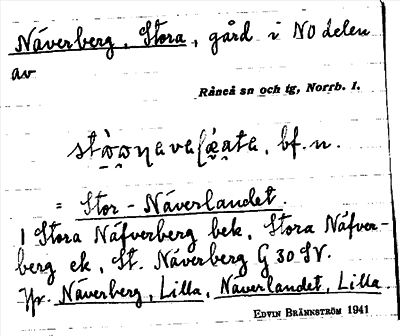 Näverberg, Stora, gård i NO delen
av
Råneå sn och tg, Norrb. l.
bf. n.
= Stor-Näverlandet.
1 Stora Näfverberg bek, Stora Näfver-
berg ek, St. Näverberg G 30 SV.
Jfr. Näverberg, Lilla, Näverlandet, Lilla
EDVIN BRÄNNSTRÖM 1941